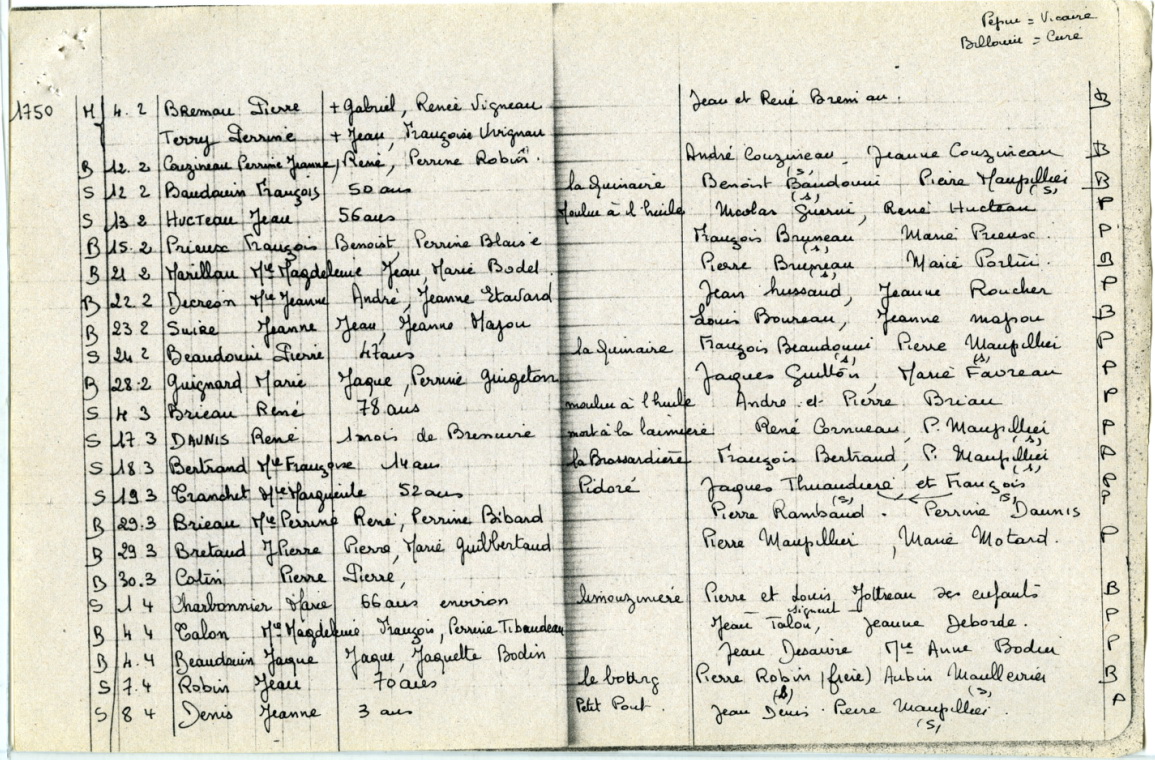 Pépin = Vicaire
Billouin = Curé
1750 M 4. 2 Bremau Pierre + Gabriel, Renée Vigneau Jean et René Bremau. B
Terry Perrine + Jean, Françoise Vrignau
B 12. 2 Couzineau Perrine Jeanne, René, Perrine Robin. André Couzineau, Jeanne Couzineau B
S 12 2 Baudouin François 50 ans la Guinaire Benoist Baudouin (s) Pierre Maupillier (s) B
S 13 2 HUCTEAU Jean 56 ans Moulin à l'huile Nicolas Guerin (s), René Hucteau P
B 15. 2 Prieux François Benoist Perrine Blaise François Bruneau Marie Prieux. P
B 21 2 Marillau Mie Magdeleine Jean Marie Bodet. Pierre Bruneau (s) Marie Portin. B
B 22. 2 Decreon Mie Jeanne André, Jeanne Etavard Jean hussaud (s), Jeanne Roucher P
B 23 2 Suire Jeanne Jean, Jeanne Majou Louis Boureau, Jeanne majou B
S 24 2 Beaudouin Pierre 47 ans la Guinaire François Beaudouin (s) Pierre Maupillier (s) P
B 28. 2 Guignard Marie Jaque, Perrine Guigeton Jaques Guitton, Marie Favreau P
S 4 3 Brieau René 78 ans moulin à l'huile Andre et Pierre Briau P
S 17. 3 DAUNIS René 1 mois de Bressuire mort à la laimiere René Cornueau, P. Maupillier (s) P
S 18. 3 Bertrand Mie Françoise 14 ans la Brossardière François Bertrand, P. Maupillier (s)
S 19 3 Tranchet Mie Marguerite 52 ans Pidoré Jaques Thuaudiere et François (s)
B 29. 3 Brieau Mie Perrine René, Perrine Bibard Pierre Rambaud (s). Perrine Daunis P
B 29. 3 Bretaud J Pierre Pierre, Marie Guilbertaud Pierre Maupillier, Marie Motard. P
B 30. 3 Cotin Pierre Pierre,
S 1 4 Charbonnier Marie 66 ans environ limouziniere Pierre et Louis Jottreau ses enfants B
B 4 4 Talon Mie Magdeleine François, Perrine Tibaudeau Jean Talon, signant Jeanne Deborde. P
B 4. 4 Beaudouin Jaque Jaque, Jaquette Bodin Jean Desaivre Mie Anne Bodin P
S 7. 4 Robin Jean 70 ans le bourg Pierre Robin (frère) (s) Aubin Maullevrier (s) B
S 8 4 Denis Jeanne 3 ans Petit Pont. Jean Denis. Pierre Maupillier. (s) P